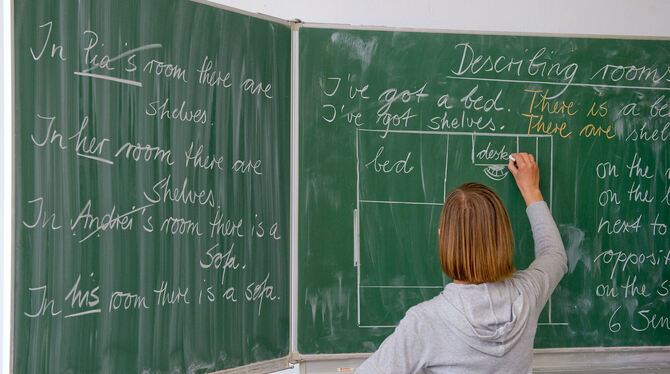 In Pia's room there are
shelves.
In her room there are
shelves.
In Andrei's room there is a
sofa.
In his room there is a sofa.
Describing rooms
I've got a bed. There is a be
I've got shelves. There are shel
bed
desk
on the
on the
next to
opposi
on the
6 Sen